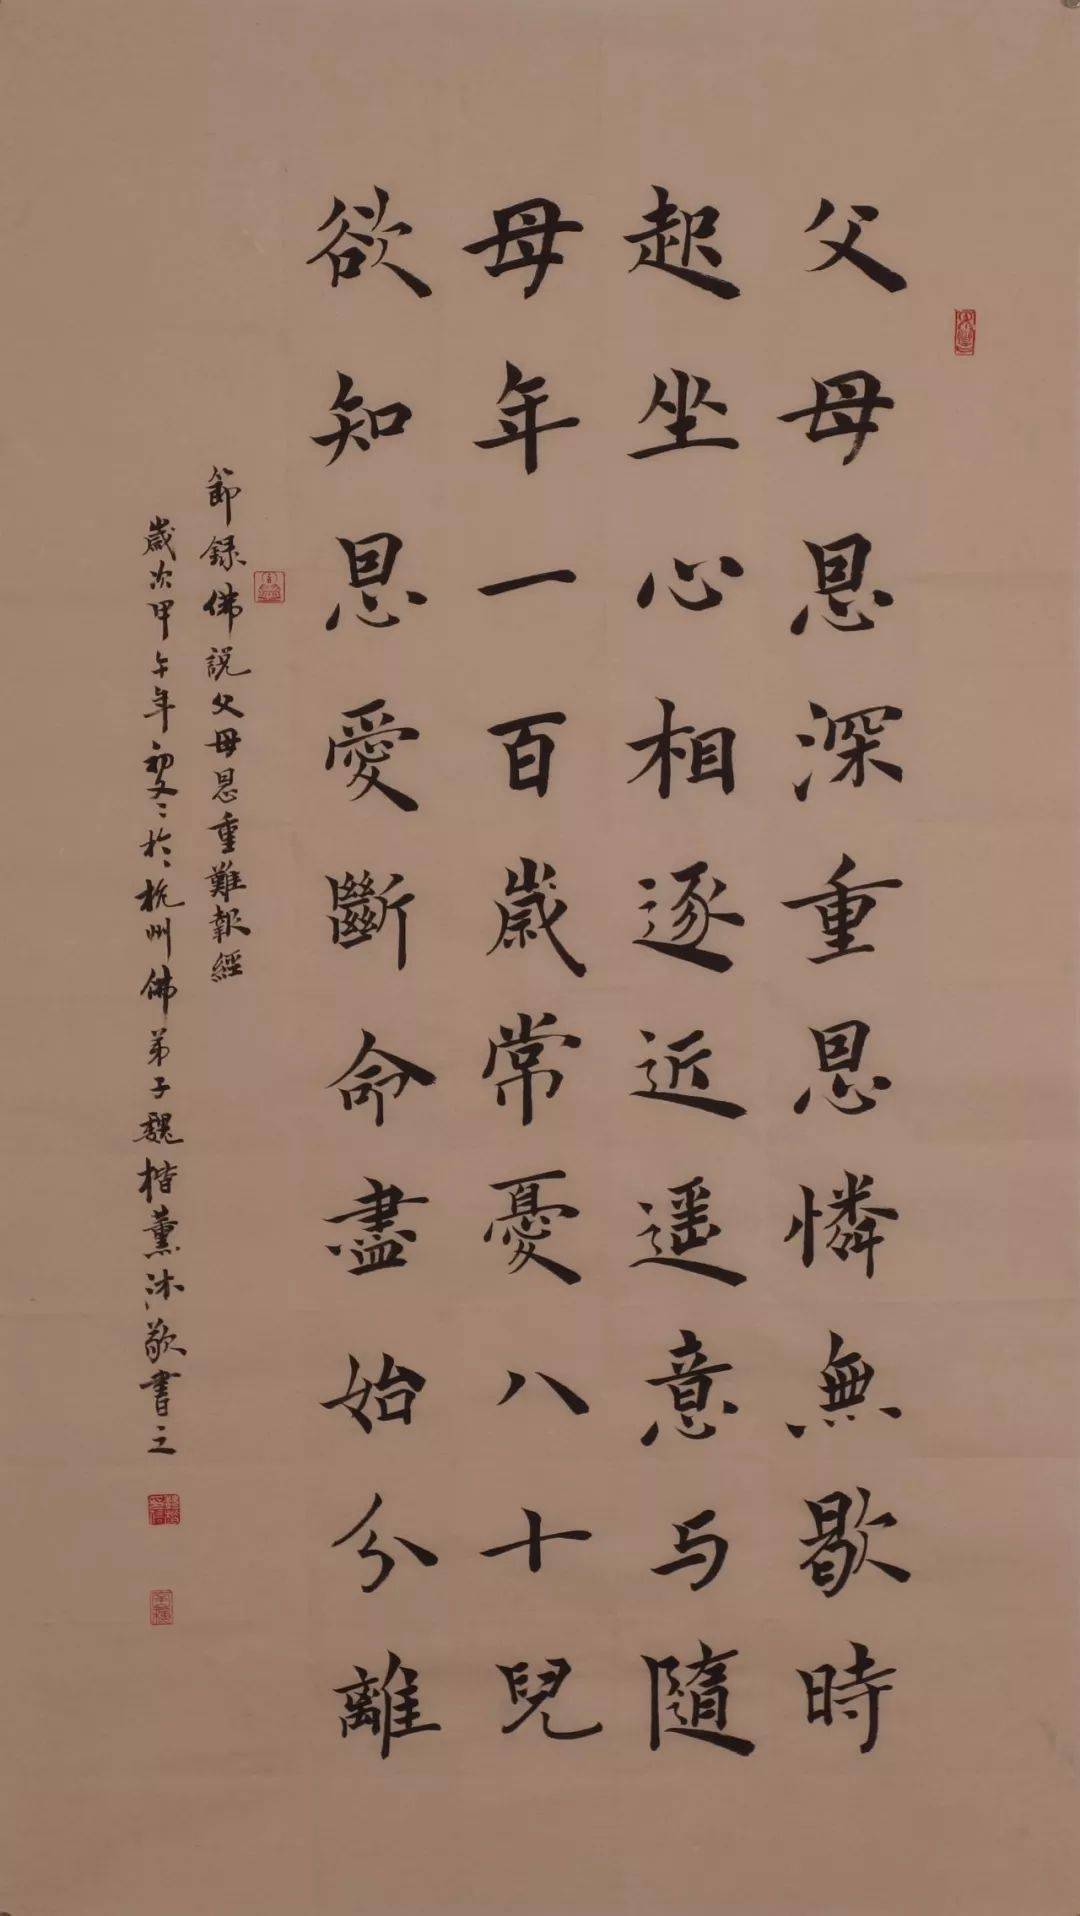 父母恩深重恩憐無歇時
起坐心相逐近遥意与隨
母年一百歲常憂八十兒
欲知恩愛斷命盡始分離
節録佛説父母恩重難報經
歲次甲午年初冬於杭州佛弟子魏楷薰沐敬書之